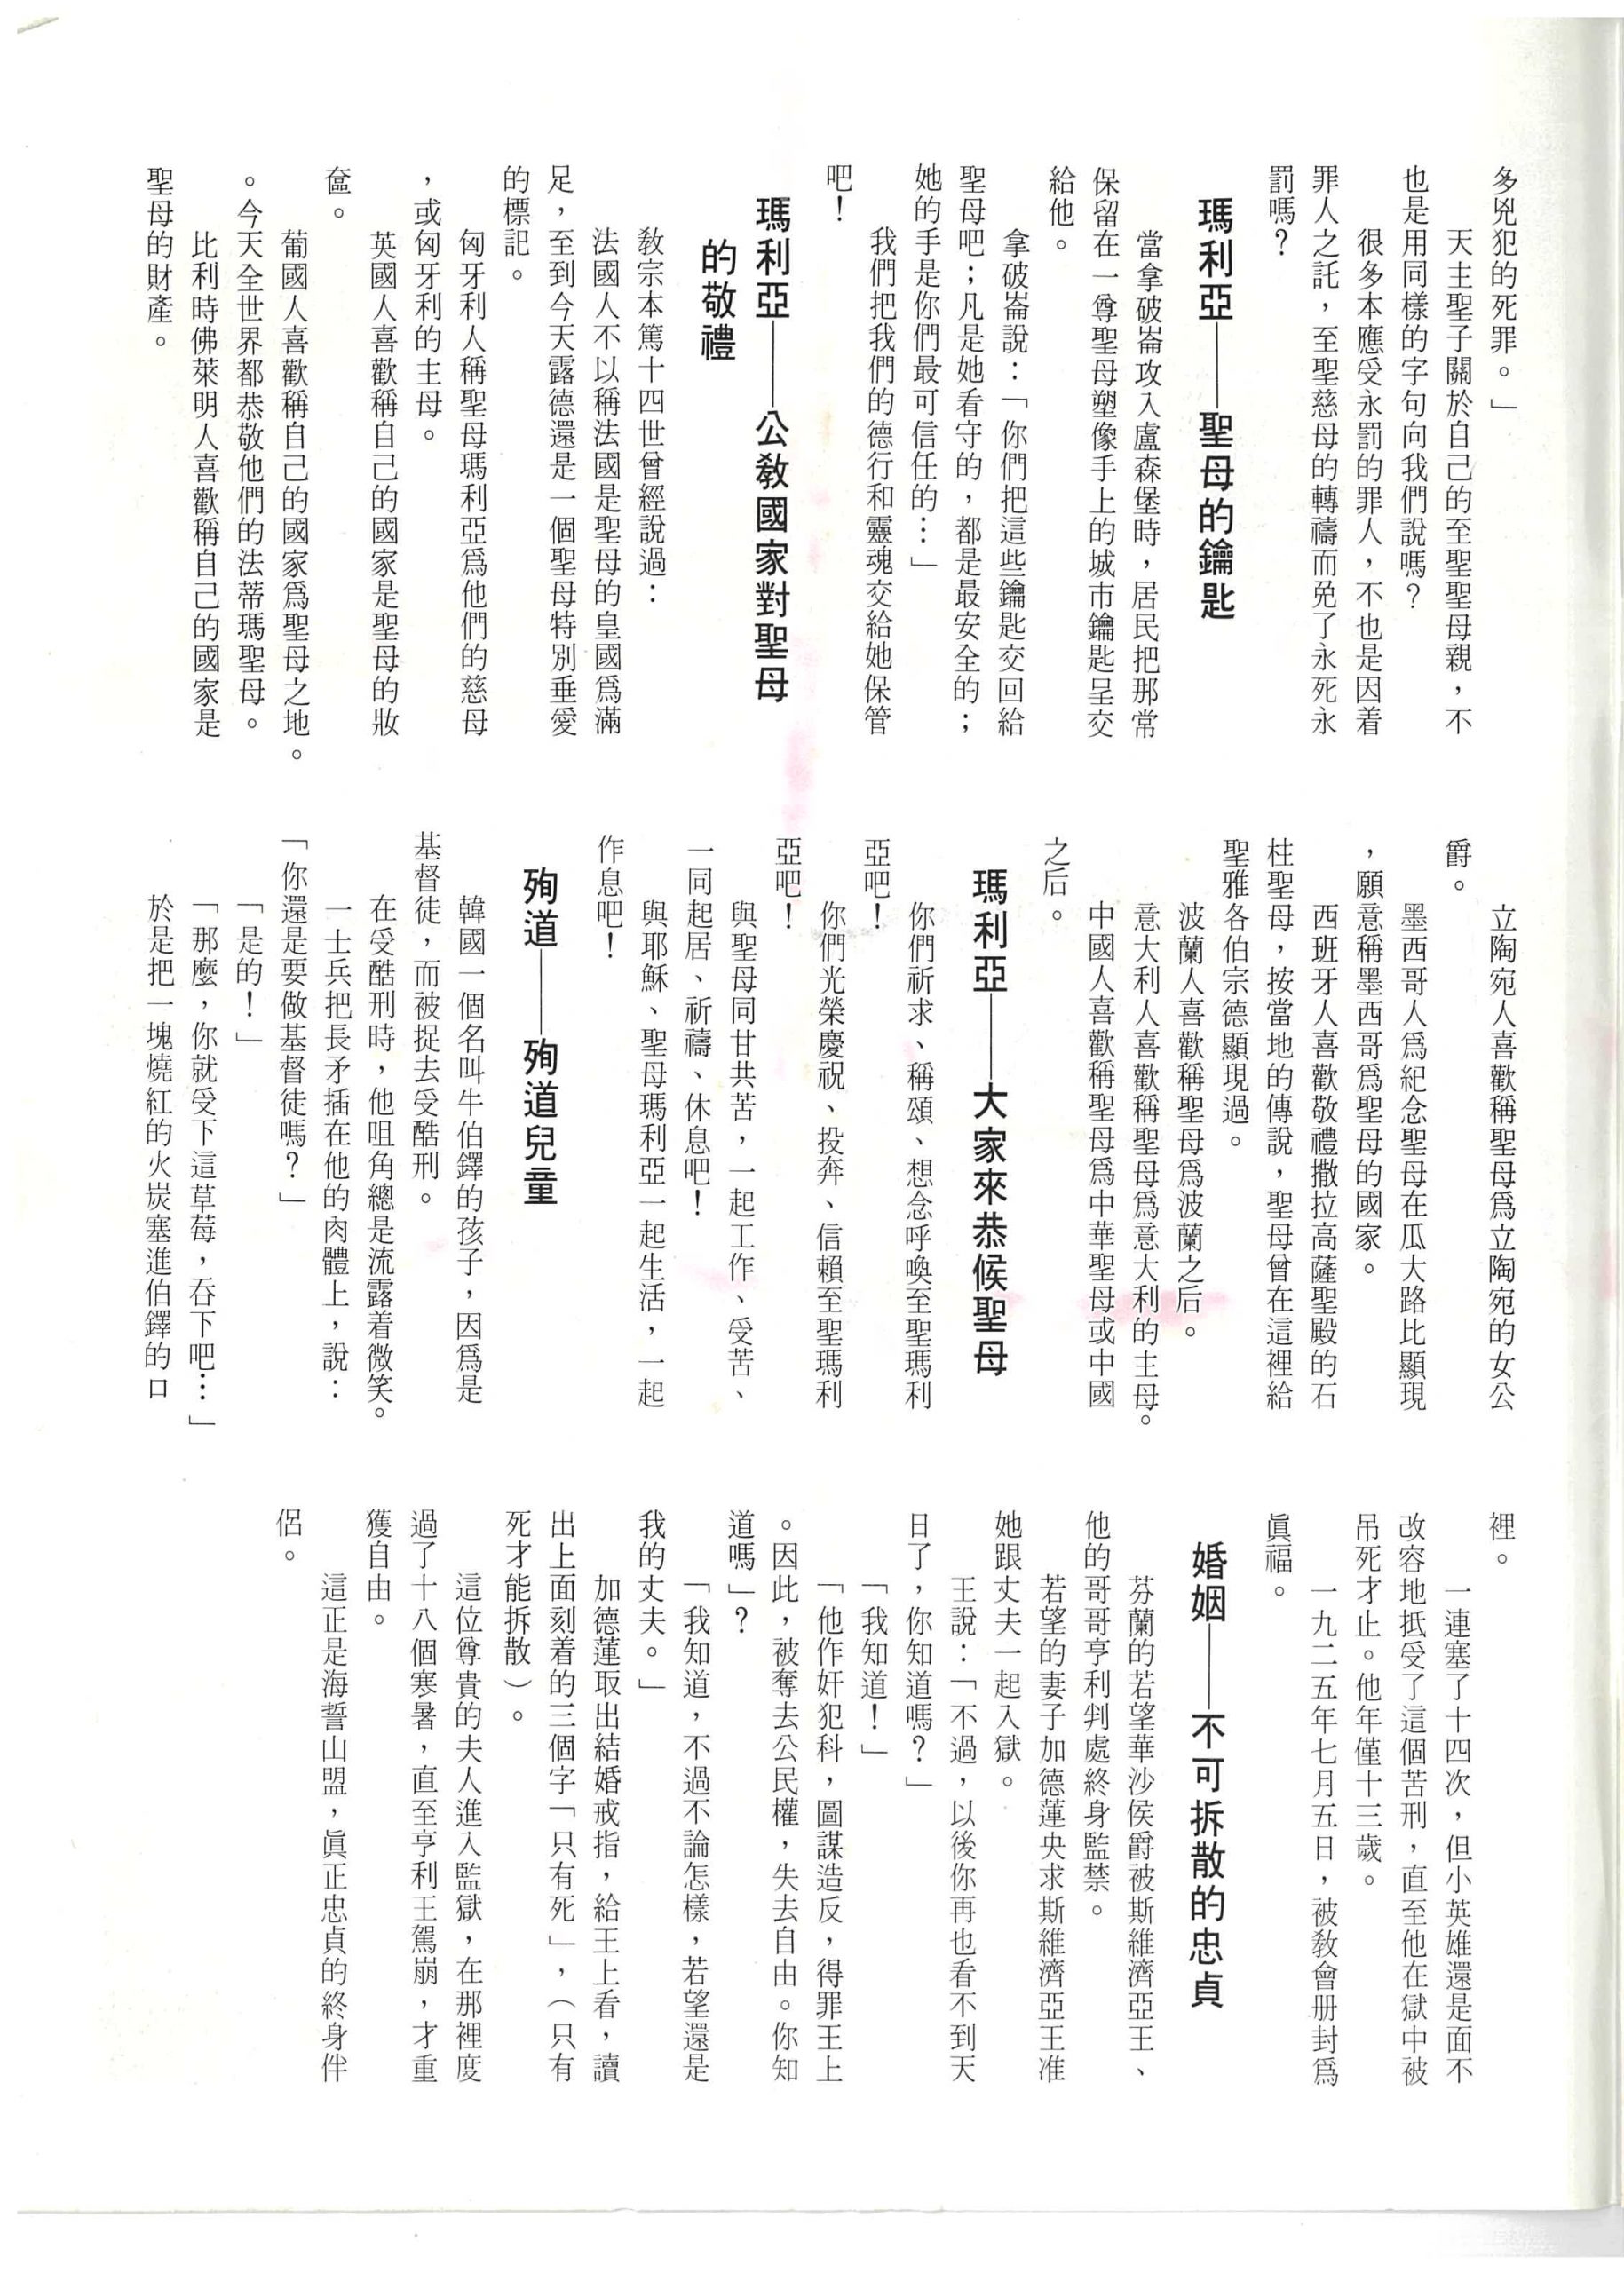 多兇犯的死罪。」
天主聖子關於自己的至聖聖母親，不
也是用同樣的字句向我們說嗎？
很多本應受永罰的罪人，不也是因着
罪人之託，至聖慈母的轉禱而免了永死永
罰嗎？
瑪利亞——聖母的鑰匙
當拿破崙攻入盧森堡時，居民把那常
保留在一尊聖母塑像手上的城市鑰匙呈交
給他。
拿破崙說：「你們把這些鑰匙交回給
聖母吧；凡是她看守的，都是最安全的；
她的手是你們最可信任的…」
我們把我們的德行和靈魂交給她保管
吧！
瑪利亞——公教國家對聖母
的敬禮
教宗本篤十四世曾經說過：
法國人不以稱法國是聖母的皇國爲滿
足，至到今天露德還是一個聖母特別垂愛
的標記。
匈牙利人稱聖母瑪利亞爲他們的慈母
，或匈牙利的主母。
英國人喜歡稱自己的國家是聖母的妝
奩。
葡國人喜歡稱自己的國家爲聖母之地。
。今天全世界都恭敬他們的法蒂瑪聖母。
比利時佛萊明人喜歡稱自己的國家是
聖母的財產。
立陶宛人喜歡稱聖母爲立陶宛的女公
爵。
墨西哥人爲紀念聖母在瓜大路比顯現
，願意稱墨西哥爲聖母的國家。
西班牙人喜歡敬禮撒拉高薩聖殿的石
柱聖母，按當地的傳說，聖母曾在這裡給
聖雅各伯宗德顯現過。
波蘭人喜歡稱聖母爲波蘭之后。
意大利人喜歡稱聖母爲意大利的主母。
中國人喜歡稱聖母爲中華聖母或中國
之后。
瑪利亞——大家來恭候聖母
你們祈求、稱頌、想念呼喚至聖瑪利
亞吧！
你們光榮慶祝、投奔、信賴至聖瑪利
亞吧！
與聖母同甘共苦，一起工作、受苦、
一同起居、祈禱、休息吧！
與耶穌、聖母瑪利亞一起生活，一起
作息吧！
殉道——殉道兒童
韓國一個名叫牛伯鐸的孩子，因爲是
基督徒，而被捉去受酷刑。
在受酷刑時，他咀角總是流露着微笑。
一士兵把長矛插在他的肉體上，說：
「你還是要做基督徒嗎？」
「是的！」
「那麼，你就受下這草莓，吞下吧…」
於是把一塊燒紅的火炭塞進伯鐸的口
裡。
一連塞了十四次，但小英雄還是面不
改容地抵受了這個苦刑，直至他在獄中被
吊死才止。他年僅十三歲。
一九二五年七月五日，被教會册封爲
眞福。
婚姻——不可拆散的忠貞
芬蘭的若望華沙侯爵被斯維濟亞王、
他的哥哥亨利判處終身監禁。
若望的妻子加德蓮央求斯維濟亞王准
她跟丈夫一起入獄。
王說：「不過，以後你再也看不到天
日了，你知道嗎？」
「我知道！」
「他作奸犯科，圖謀造反，得罪王上
。因此，被奪去公民權，失去自由。你知
道嗎」？
「我知道，不過不論怎樣，若望還是
我的丈夫。」
加德蓮取出結婚戒指，給王上看，讀
出上面刻着的三個字「只有死」，（只有
死才能拆散）。
這位尊貴的夫人進入監獄，在那裡度
過了十八個寒暑，直至亨利王駕崩，才重
獲自由。
這正是海誓山盟，眞正忠貞的終身伴
侶。